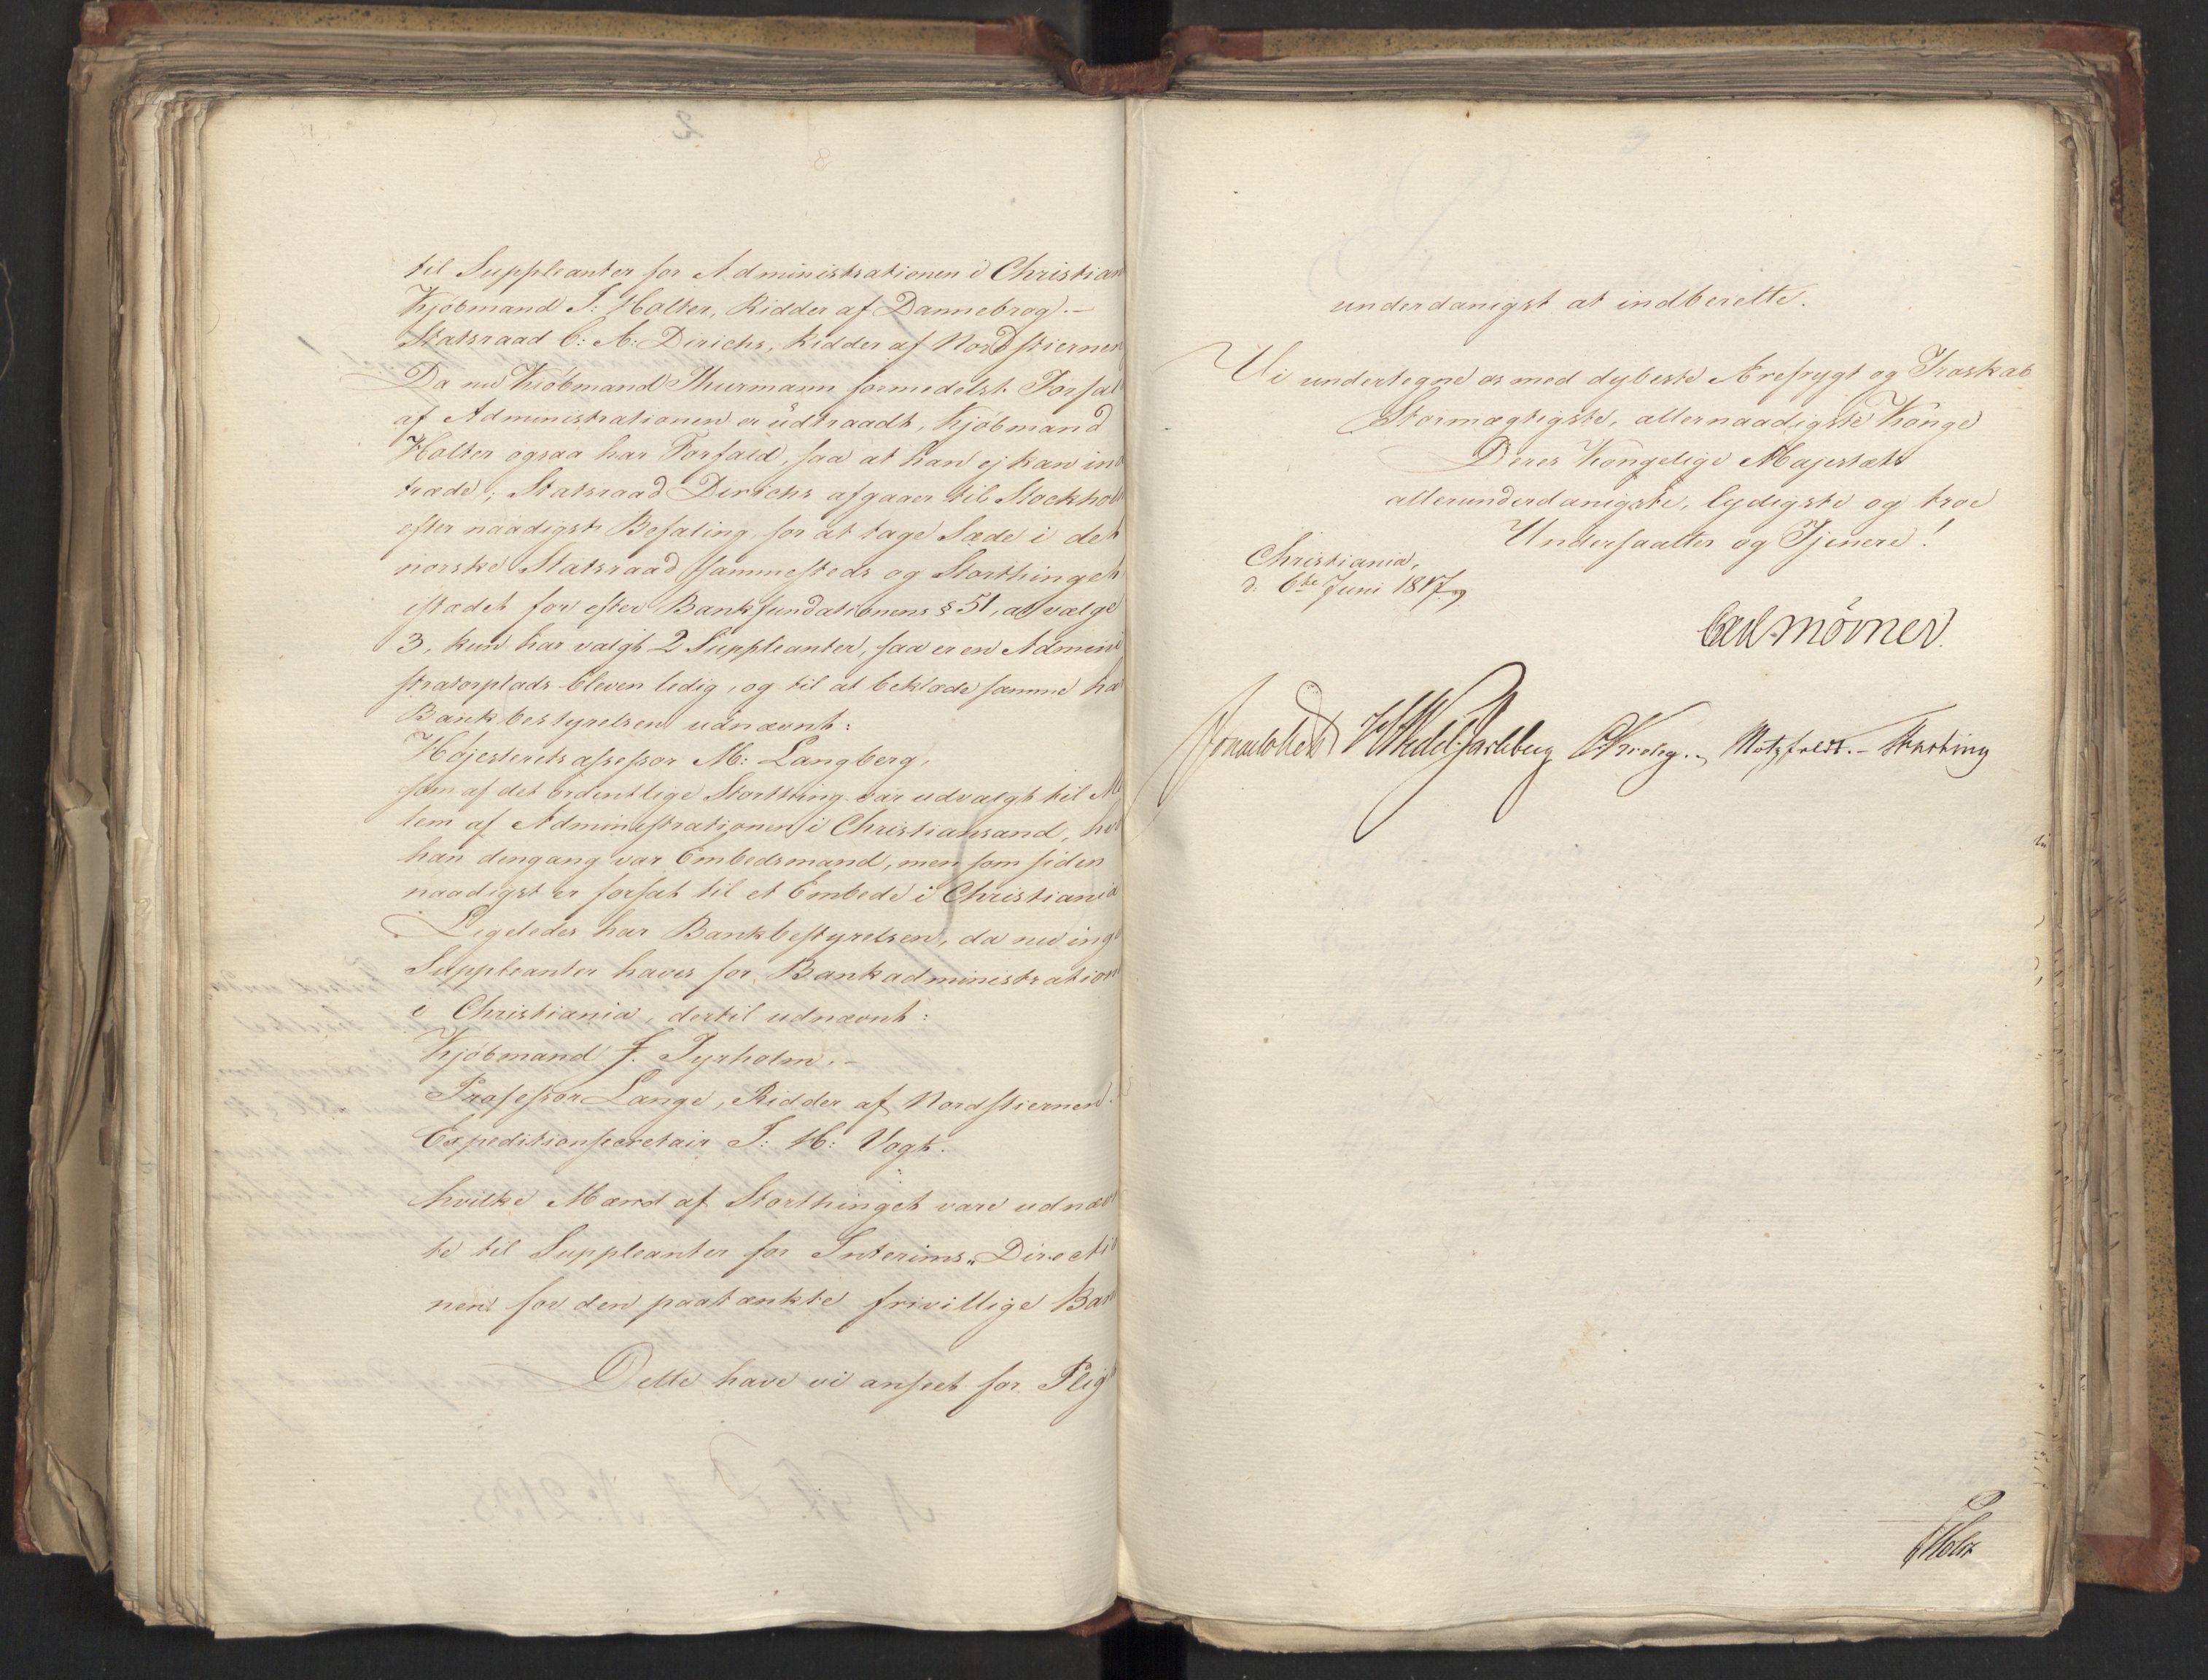 til Suppleanter for Administrationen i Christian
Kjöbmand J: Holter, Ridder af Dannebrog.-
Statsraad C: A: Dirichs, Ridder af Nordstiernen
Da nu Kiöbmand Thurmann formedelst Forfal
af Administrationen er udtraadt, Kjöbmand
Holter ogsaa har Forfald, saa at han ej kan ind
træde; Statsraad Dirichs afgaaer til Stockhol
efter naadigst Befaling for at tage Sæde i det
norske Statsraad sammesteds og Storthinget
istædet for efter Bankfundationens § 51, at vælge
3, kun har valgt 2 Suppleanter, saa er en Admini
stratorplads bleven ledig, og til at beklæde samme ha
Bankbestyrelsen udnævnt:
Høiesteretsassessor M: Langberg,
som af det ordentlige Storthing var udvalgt til Me
lem af Administrationen i Christiansand, hvo
han dengang var Embedsmand, men som siden
naadigst er forsat til et Embede i Christiania
Ligeledes har Bankbestyrelsen, da nu inge
Suppleanter haves for Bankadministration
i Christiania, dertil udnævnt:
Kjöbmand J. Tyrholm.-
Professor Lange, Ridder af Nordstiernen.
Expeditionssecretair J: H: Vogt.
hvilke Mænd af Storthinget vare udnæv
te til Suppleanter for Interims-Directio
nen for den paatænkte frivillige Ban
Dette have vi anseet for Pligt
underdanigst at indberette.
Vi undertegne os med dybeste Ærefrygt og Troskab
Stormægtigste, allernaadigste Konge
Deres Kongelige Majestæts
allerunderdanigste, lydigste og troe
Undersaatter og Tjenere!
Christiania,
d. 6te Juni 1817
Carl Mörner.
Sommerhielm HWedelJarlsberg CKrohg. Motzfeldt.- Fasting
Holst